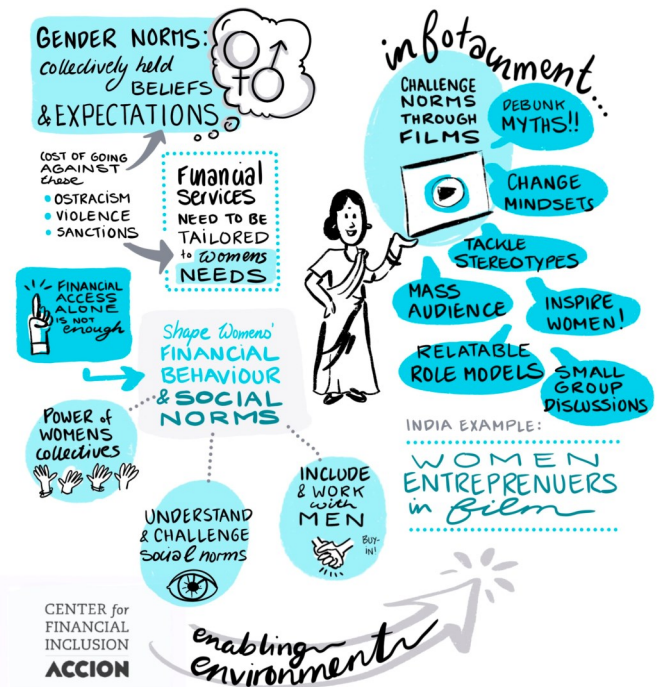 GENDER NORMS:
collectively held
BELIEFS
& EXPECTATIONS
COST OF GOING
AGAINST
these
• OSTRACISM
• VIOLENCE
• SANCTIONS
Financial
Services
NEED TO BE
TAILORED
to womens
NEEDS
FINANCIAL
ACCESS
ALONE
IS NOT
enough
Shape Womens'
FINANCIAL
BEHAVIOUR
& SOCIAL
NORMS
POWER of
WOMENS
collectives
UNDERSTAND
& CHALLENGE
social norms
INCLUDE
& WORK
with
MEN
BUY-
IN!
infotainment...
CHALLENGE
NORMS
THROUGH
FILMS
DEBUNK
MYTHS!!
CHANGE
MINDSETS
TACKLE
STEREOTYPES
MASS
AUDIENCE
INSPIRE
WOMEN!
RELATABLE
ROLE MODELS
SMALL
GROUP
DISCUSSIONS
INDIA EXAMPLE:
WOMEN
ENTREPRENUERS
in film
enabling
environment
CENTER for
FINANCIAL
INCLUSION
ACCION